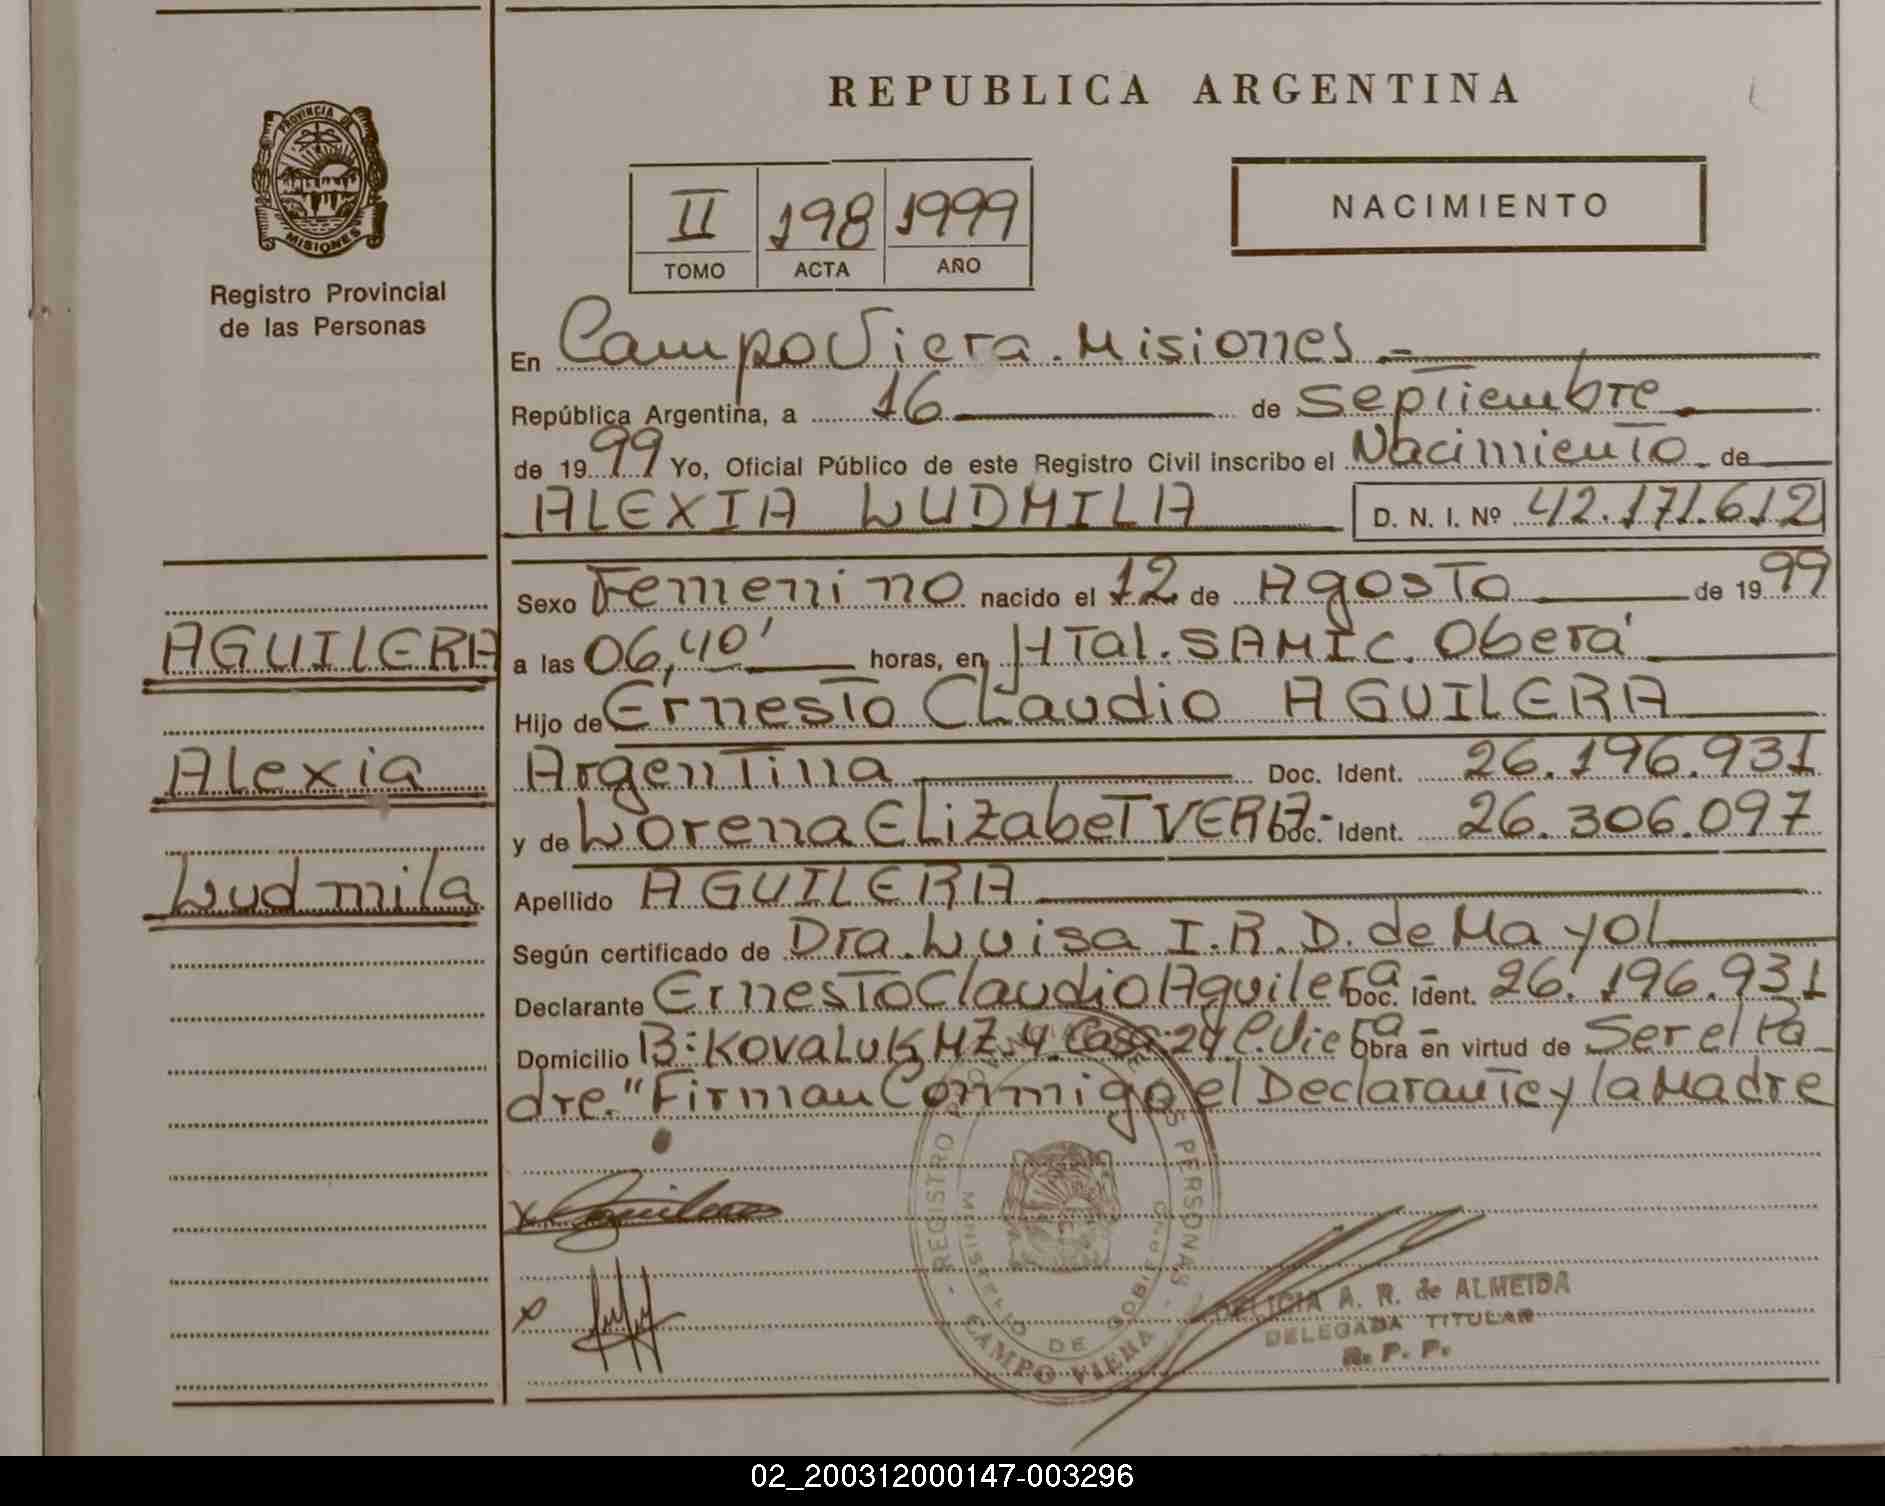 PROVINCIA DE
MISIONES
Registro Provincial
de las Personas
AGUILERA
Alexia
Ludmila
REPUBLICA ARGENTINA
II 198 1999
TOMO ACTA AÑO
NACIMIENTO
En Campo Viera. Misiones.-
República Argentina, a 16 de septiembre
de 1999 Yo, Oficial Público de este Registro Civil inscribo el Nacimiento de
ALEXIA LUDMILA D. N. I. Nº 42.171.612
Sexo Femenino nacido el 12 de Agosto de 1999
a las 06,40' horas, en HTal. SAMIC. Oberá
Hijo de Ernesto Claudio AGUILERA
Argentina Doc. Ident. 26.196.931
y de Lorena Elizabet VERA.- Doc. Ident. 26.306.097
Apellido AGUILERA
Según certificado de Dra. Luisa I.R.D. de Mayol
Declarante Ernesto Claudio Aguilera- Doc. Ident. 26.196.931
Domicilio B: Kovaluk MZ. 4 Casa: 24 C. Viera- Obra en virtud de Ser el Pa
dre." Firman Conmigo el Declarante y la Madre
x Aguilera
x
REGISTRO PROVINCIAL DE LAS PERSONAS
MINISTERIO DE GOBIERNO
CAMPO VIERA
DELICIA A. R. de ALMEIDA
DELEGADA TITULAR
R. P. P.
02_200312000147-003296